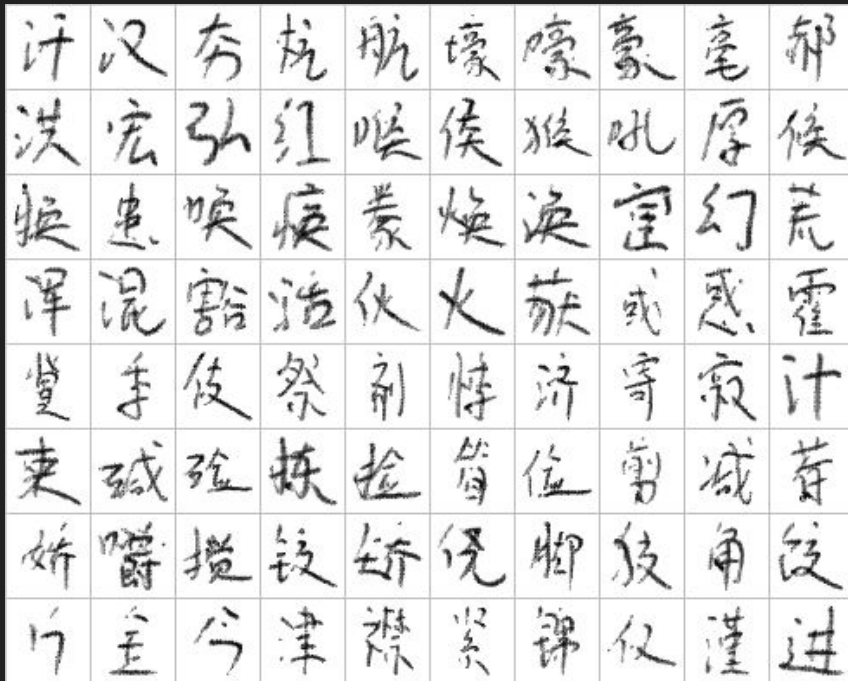 汗汉夯杭航壕嚎豪毫郝
洪宏弘红喉侯猴吼厚候
痪患唤痪豢焕涣宦幻荒
浑混豁活伙火获或惑霍
冀季伎祭剂悸济寄寂汁
柬碱硷拣捡简俭剪减荐
娇嚼搅铰矫侥脚狡角饺
巾筋斤金今津襟紧锦仅谨进